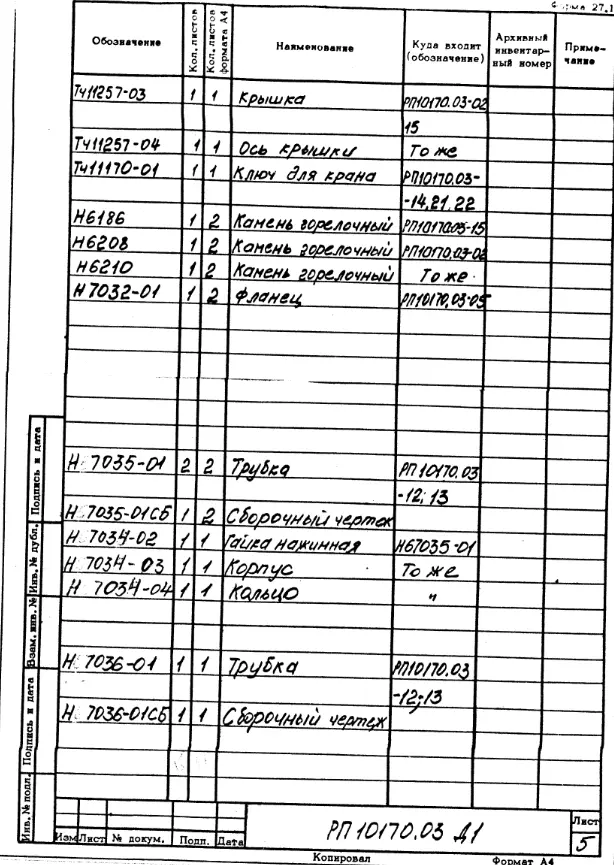 Форма 27.1
Обозначение Кол. листов Кол. листов формата А4 Наименование Куда входит (обозначение) Архивный инвентарный номер Примечание
ТЧ11257-03 1 1 Крышка РП10170.03-02
15
ТЧ11257-04 1 1 Ось крышки То же
ТЧ11170-01 1 1 Ключ для крана РП10170.03-
-14,21,22
Н6186 1 2 Камень горелочный РП10170.03-15
Н6208 1 2 Камень горелочный РП10170.03-02
Н6210 1 2 Камень горелочный То же
Н7032-01 1 2 Фланец РП10170.03-05
Н 7035-01 2 2 Трубка РП10170.03
-12;13
Н 7035-01СБ 1 2 Сборочный чертеж
Н 7034-02 1 1 Гайка нажинная Н67035-01
Н 7034-03 1 1 Корпус То же
Н 7034-04 1 1 Кольцо "
Н 7036-01 1 1 Трубка РП10170.03
-12;13
Н 7036-01СБ 1 1 Сборочный чертеж
Инв. № подл. Подпись и дата Взам. инв. № Инв. № дубл. Подпись и дата
РП10170.03 Д1
Лист
5
Изм Лист № докум. Подп. Дата
Копировал Формат А4